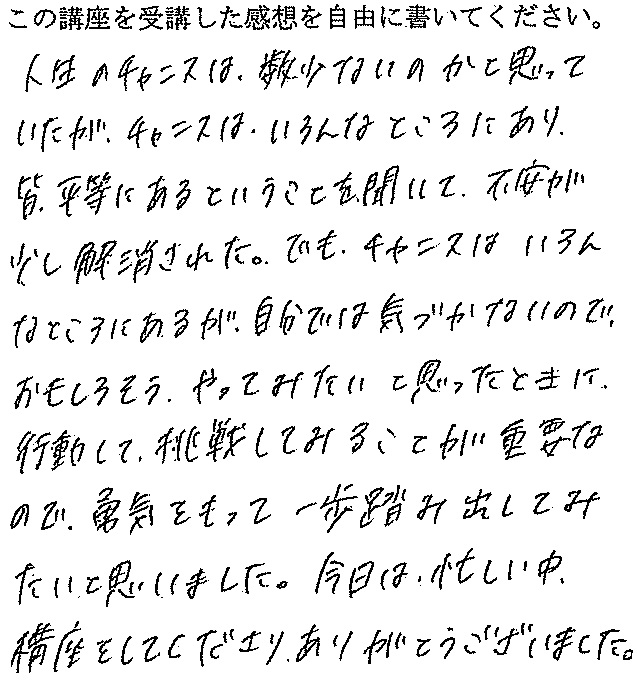 この講座を受講した感想を自由に書いてください。
人生のチャンスは、数少ないのかと思って
いたが、チャンスは、いろんなところにあり、
皆、平等にあるということを聞いて、不安が
少し解消された。でも、チャンスはいろん
なところにあるが、自分では気づかないので、
おもしろそう、やってみたいと思ったときに、
行動して、挑戦してみることが重要な
ので、勇気をもって一歩踏み出してみ
たいと思いました。今日は、忙しい中、
講座をしてくださり、ありがとうございました。